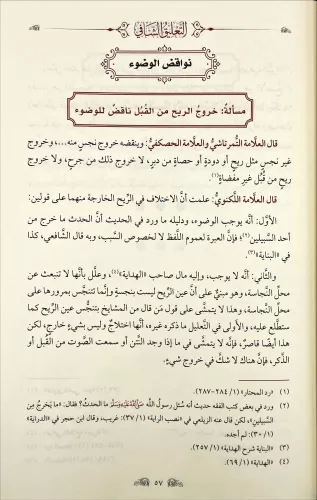 التعليق الشافي
نواقض الوضوء
مسألة: خروجُ الريح من القُبُل ناقضٌ للوضوء
قال العلَّامة التُّمرتاشيُّ والعلَّامة الحصكفيُّ: وينقضه خروج نجس منه...، وخروج
غير نجس مثل ريح أو دودة أو حصاة من دبر، لا خروج ذلك من جرح، ولا خروج
ريح من قُبُل غير مفضاة(١).
قال العلَّامة اللَّكنويُّ: علمت أنَّ الاختلاف في الرِّيح الخارجة منهما على قولين:
الأوَّل: أنَّه يوجب الوضوء، ودليله ما ورد في الحديث أنَّ الحدث ما خرج من
أحد السَّبيلين(٢)؛ فإنَّ العبرة لعموم اللَّفظ لا لخصوص السَّبب، وبه قال الشَّافعي، كذا
في «البناية»(٣).
والثَّاني: أنَّه لا يوجب، وإليه مال صاحب «الهداية»(٤)، وعلَّل بأنَّها لا تنبعث عن
محلِّ النَّجاسة، وهو مبنيٌّ على أنَّ عين الرِّيح ليست بنجسة وإنَّما تتنجَّس بمرورها على
محلِّ النَّجاسة، وهذا لا يتمشَّى على قول مَن قال من المشايخ بتنجُّس عين الرِّيح كما
ستطَّلع عليه، والأولى في التَّعليل ما ذكره غيره، أنَّها اختلاجٌ وليس بشيء خارج، لكن
هذا أيضًا قاصرٌ، فإنَّه لا يتمشَّى في ما إذا وجد النَّتن أو سمعت الصَّوت من القُبُل أو
الذَّكر، فإنَّ هناك لا شكَّ في خروج شيءٍ.
(١) «رد المحتار» (١/ ٢٨٤-٢٨٧).
(٢) ورد في بعض كتب الفقه حديث أنه سُئل رسول اللَّه ﷺ ما الحدث؟ فقال: «ما يَخرجُ مِن
السبيلين»، لكن قال عنه الزيلعي في «نصب الراية» (١/ ٣٧): غريب، وقال ابن حجر في «الدراية»
(١/ ٣٠): لم أجده.
(٣) «البناية شرح الهداية» (١/ ٢٥٧).
(٤) «الهداية» (١/ ٦٩).
٥٧